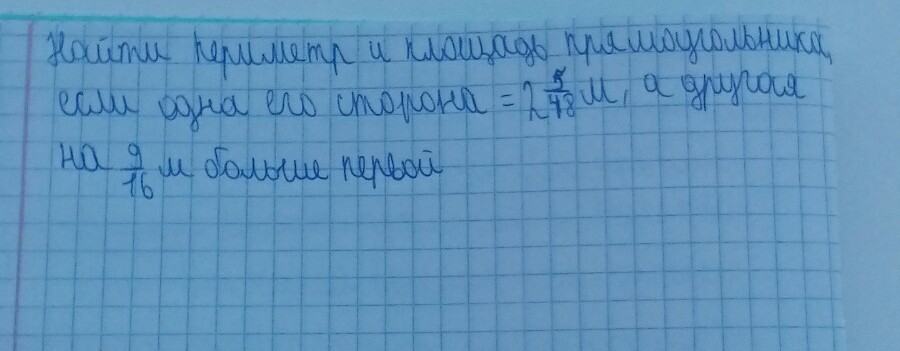 Найти периметр и площадь прямоугольника,
если одна его сторона = 2 5/48 м, а другая
на 9/16 м больше первой